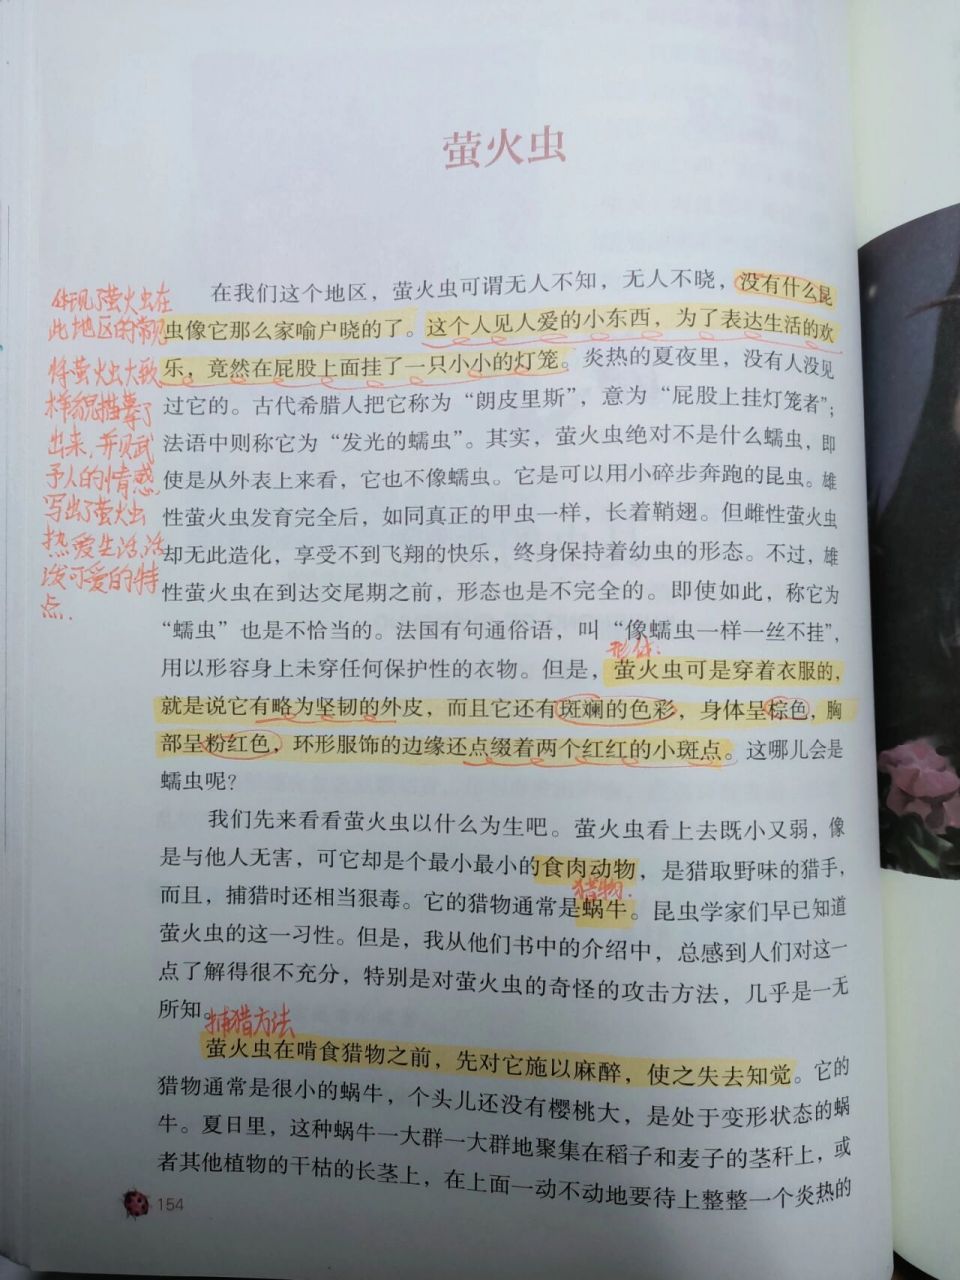 萤火虫
在我们这个地区，萤火虫可谓无人不知，无人不晓，没有什么昆
虫像它那么家喻户晓的了。这个人见人爱的小东西，为了表达生活的欢
乐，竟然在屁股上面挂了一只小小的灯笼。炎热的夏夜里，没有人没见
过它的。古代希腊人把它称为“朗皮里斯”，意为“屁股上挂灯笼者”；
法语中则称它为“发光的蠕虫”。其实，萤火虫绝对不是什么蠕虫，即
使是从外表上来看，它也不像蠕虫。它是可以用小碎步奔跑的昆虫。雄
性萤火虫发育完全后，如同真正的甲虫一样，长着鞘翅。但雌性萤火虫
却无此造化，享受不到飞翔的快乐，终身保持着幼虫的形态。不过，雄
性萤火虫在到达交尾期之前，形态也是不完全的。即使如此，称它为
“蠕虫”也是不恰当的。法国有句通俗语，叫“像蠕虫一样一丝不挂”，
用以形容身上未穿任何保护性的衣物。但是，萤火虫可是穿着衣服的，
就是说它有略为坚韧的外皮，而且它还有斑斓的色彩，身体呈棕色，胸
部呈粉红色，环形服饰的边缘还点缀着两个红红的小斑点。这哪儿会是
蠕虫呢？
我们先来看看萤火虫以什么为生吧。萤火虫看上去既小又弱，像
是与他人无害，可它却是个最小最小的食肉动物，是猎取野味的猎手，
而且，捕猎时还相当狠毒。它的猎物通常是蜗牛。昆虫学家们早已知道
萤火虫的这一习性。但是，我从他们书中的介绍中，总感到人们对这一
点了解得很不充分，特别是对萤火虫的奇怪的攻击方法，几乎是一无
所知。
萤火虫在啃食猎物之前，先对它施以麻醉，使之失去知觉。它的
猎物通常是很小的蜗牛，个头儿还没有樱桃大，是处于变形状态的蜗
牛。夏日里，这种蜗牛一大群一大群地聚集在稻子和麦子的茎秆上，或
者其他植物的干枯的长茎上，在上面一动不动地要待上整整一个炎热的
154
体现了萤火虫在
此地区的常见
将萤火虫大致
样貌描摹了
出来，并
予人的情感
写出了萤火虫
热爱生活、活
泼可爱的特
点.
形体：
猎物.
捕猎方法